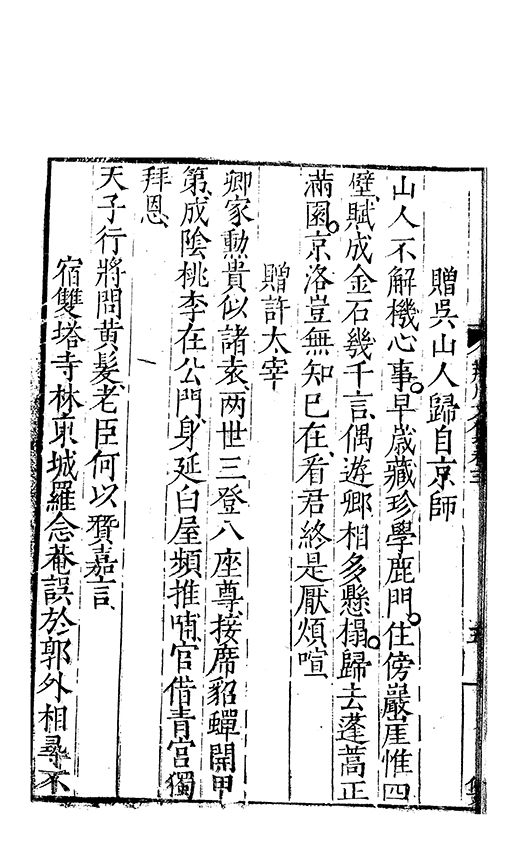 贈吳山人歸自京師
山人不解機心事早歲藏珍學鹿門住傍巖崖惟四
壁賦成金石幾千言偶遊卿相多懸榻歸去蓬蒿正
滿園京洛豈無知已在看君終是厭煩喧
贈許太宰
卿家勳貴似諸袁两世三登八座尊接席貂蟬開甲
第成陰桃李在公門身延白屋頻推哺官借青宮獨
拜恩
天子行將問黄髮老臣何以賛嘉言
宿雙塔寺林東城羅念菴誤於郭外相尋不